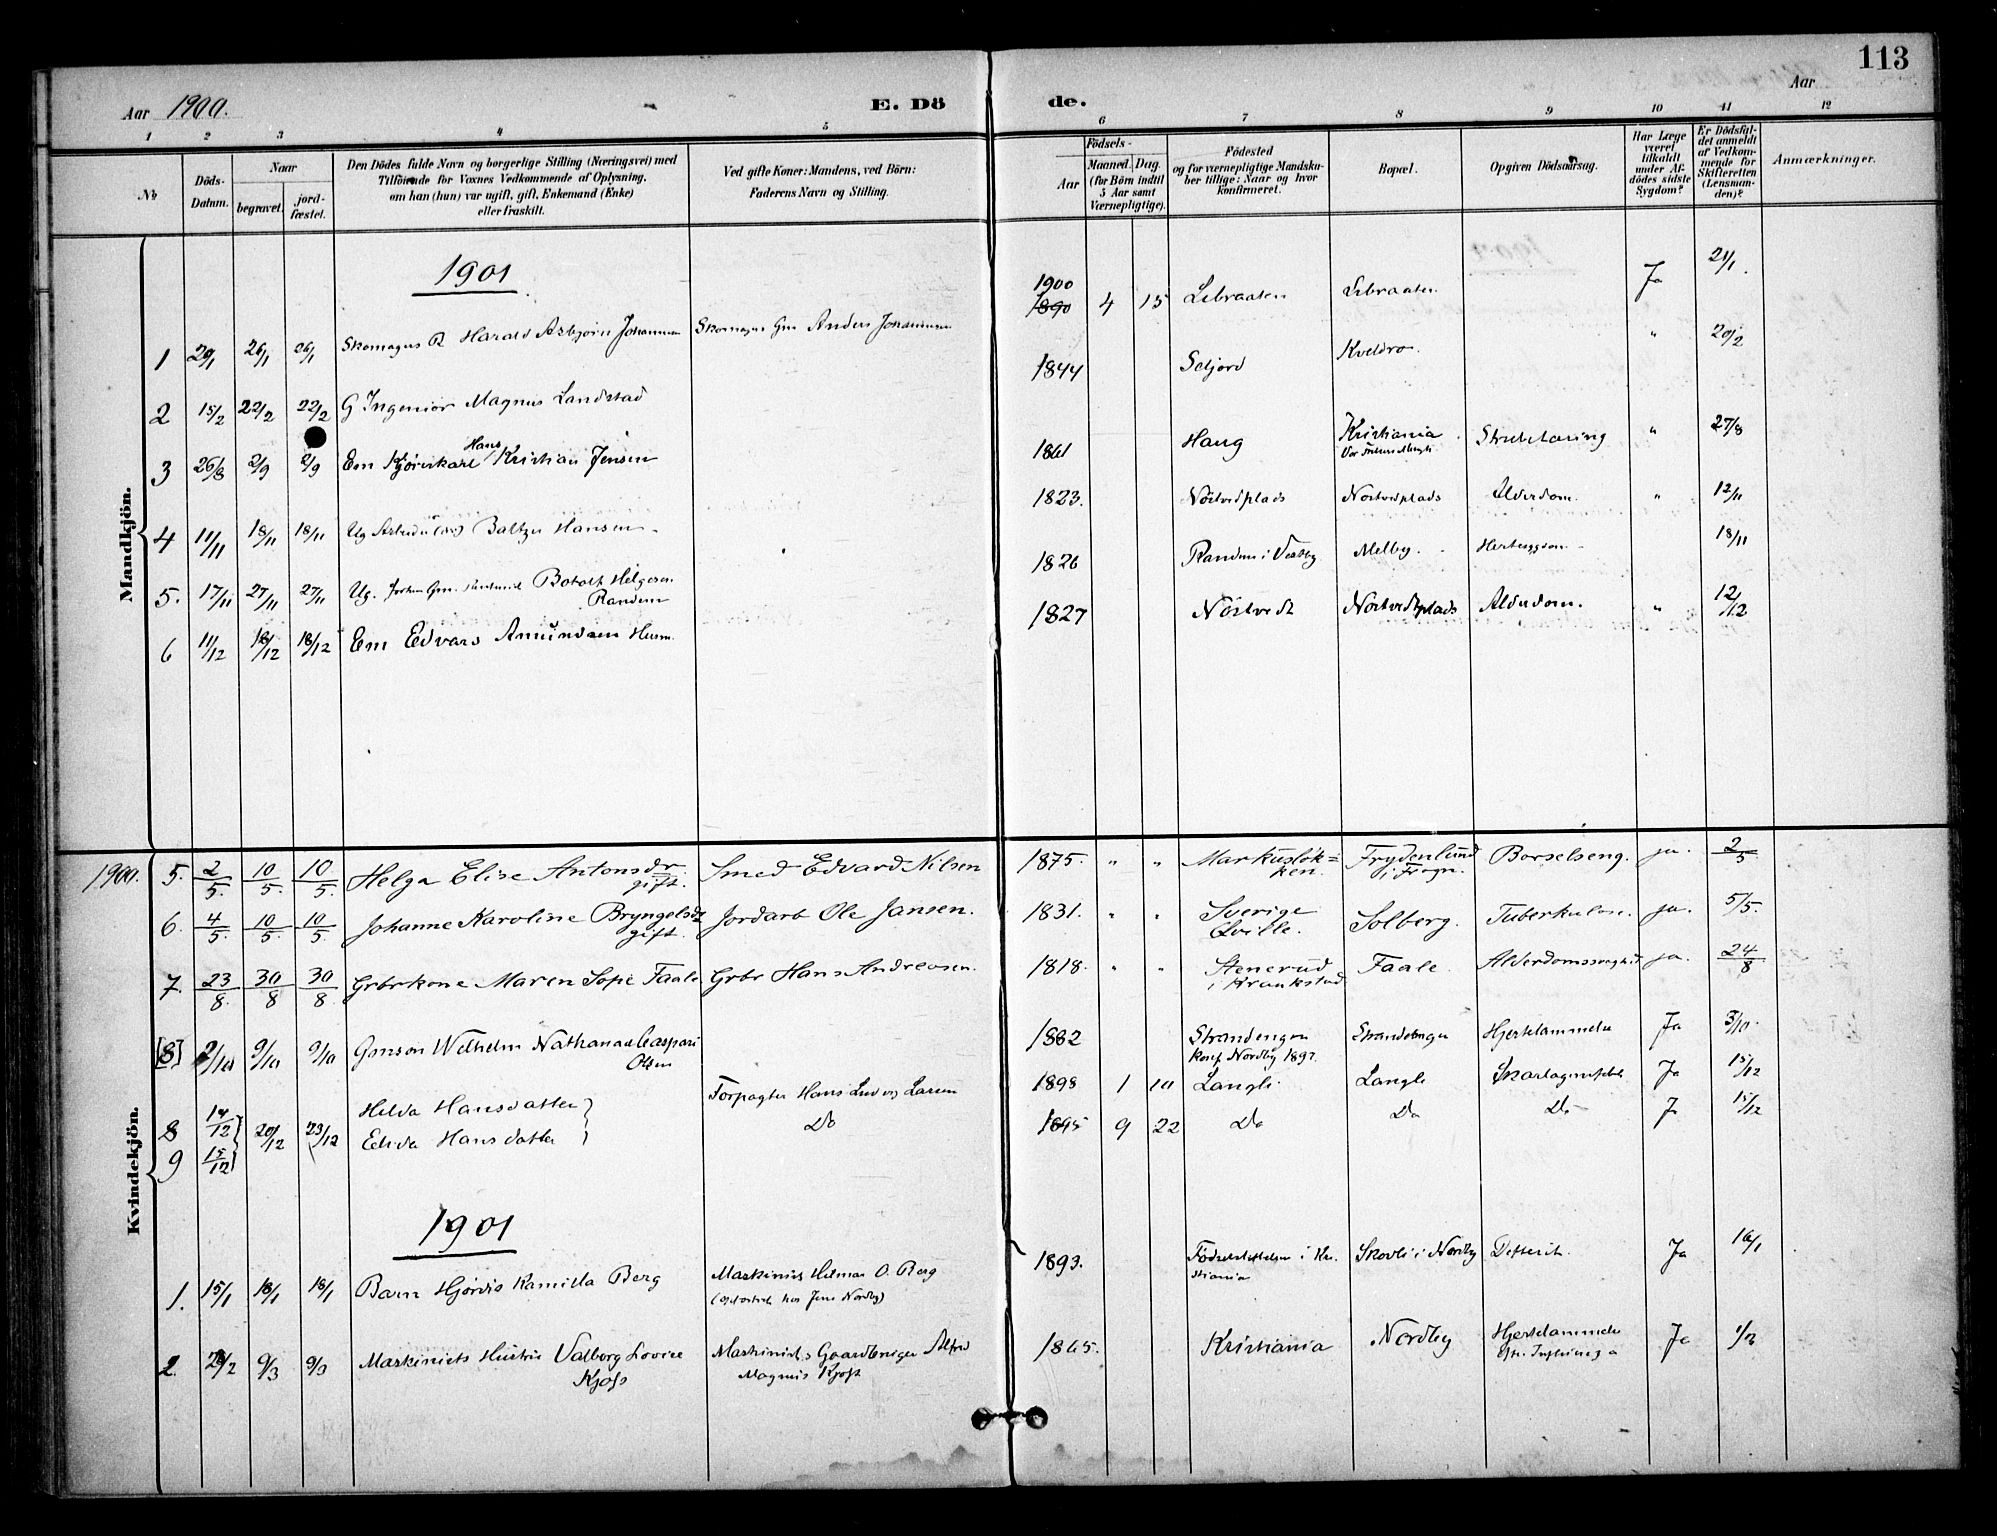 113
Aar 1900.
E. Dö
de.
Aar
1 2 3 4 5
6 7 8 9 10 11 12
No
Döds-
Datum.
Naar
begravet.
jord-
fæstet.
Den Dödes fulde Navn og borgerlige Stilling (Næringsvei) med
Tilföiende for Voxnes Vedkommende af Oplysning,
om han (hun) var ugift, gift, Enkemand (Enke)
eller fraskilt.
Ved gifte Koner: Mandens, ved Börn:
Faderens Navn og Stilling.
Födsels-
Aar
Maaned.
Dag.
(for Börn indtil
5 Aar samt
Værnepligtige).
Födested
og for værnepligtige Mandsku-
ber tillige: Naar og hvor
konfirmeret.
Bopæl.
Opgiven Dödsaarsag.
Har Læge
været
tilkaldt
under Af-
dödes sidste
Sygdom?
Er Dödsfal-
det anmeldt
af Vedkom-
mende for
Skifteretten
(Lensman-
den)?
Anmærkninger.
Mandkjön.
1901
1 20/1 26/1 26/1 Skomagers B. Harald Asbjørn Johannesen Skomager Gm Anders Johannesen 1900 1890 4 15 Lebraaten Lebraaten Ja 21/1.
2 15/2 22/2 22/2 G Ingeniør Magnus Landstad 1844 Seljord Kveldro. " 20/2
3 26/8 2/9 2/9 Em Kjørekarl Hans Kristian Jensen 1861 Haug Kristiania Strubetæring " 27/8
4 11/11 18/11 18/11 Ug Arbeider Baltzer Hansen 1823. Nöstvedplads Nostvedplads Alderdom. " 12/11
5. 17/11 27/11 27/11 Ug. Botolf Helgesen
Randem 1826 Randem i Vestby Melby. 18/11
6 11/12 18/12 18/12 Em Edvard Amundsen Husm. 1827 Nöstvedt Nostvedtplads Alderdom. " 12/12
Kvindekjön.
1900. 5. 2/5. 10/5. 10/5. Helga Elise Antonsdr
gift. Smed Edvard Nilsen 1875. " " Markuslök=
ken. Frydenlund
i Frogn. Borselseng. ja. 2/5
6. 4/5. 10/5. 10/5. Johanne Karoline Bryngelsdr
gift. Jordarb Ole Jansen. 1831. " " Sverige
Qville. Solberg. Tuberkulose. ja. 5/5.
7. 23/8. 30/8 30/8 Grbrkone Maren Sofie Faale Grbr Hans Andreasen. 1818. " " Stenerud
i Kraakstad Faale. Alderdomssvaghed ja. 24/8
[8] 2/10 9/10 9/10 Gmson Wilhelm Nathanael Caspari
Olsen 1882 Strandengen
Konf Nordby 1897. Strandengen Hjertelammelse Ja 3/10.
8 14/12 20/12 23/12 Helda Hansdatter Forpagter Hans Ludvig Larsen 1898 1 10 Langli Langli Skarlagensfeber Ja 15/12
9 15/12 Edvda Hansdatter Do 1895 9 22 Do Do Do J 15/12
1901
1. 15/1 18/1 18/1 Barn Hjördis Kamilla Berg Maskinist Hilmar O. Berg
1893. Födselsstiftelsen i Kri-
stiania Skovli i Nordby Difterit. Ja 16/1
2. 28/2 9/3 9/3 Maskinists Hustru Valborg Lovise
Kjøss Maskinist & Gaardbruger Alfred
Magnus Kjøss 1865. Kristiania Nordby Hjertelammelse
efter Influenza Ja 1/3